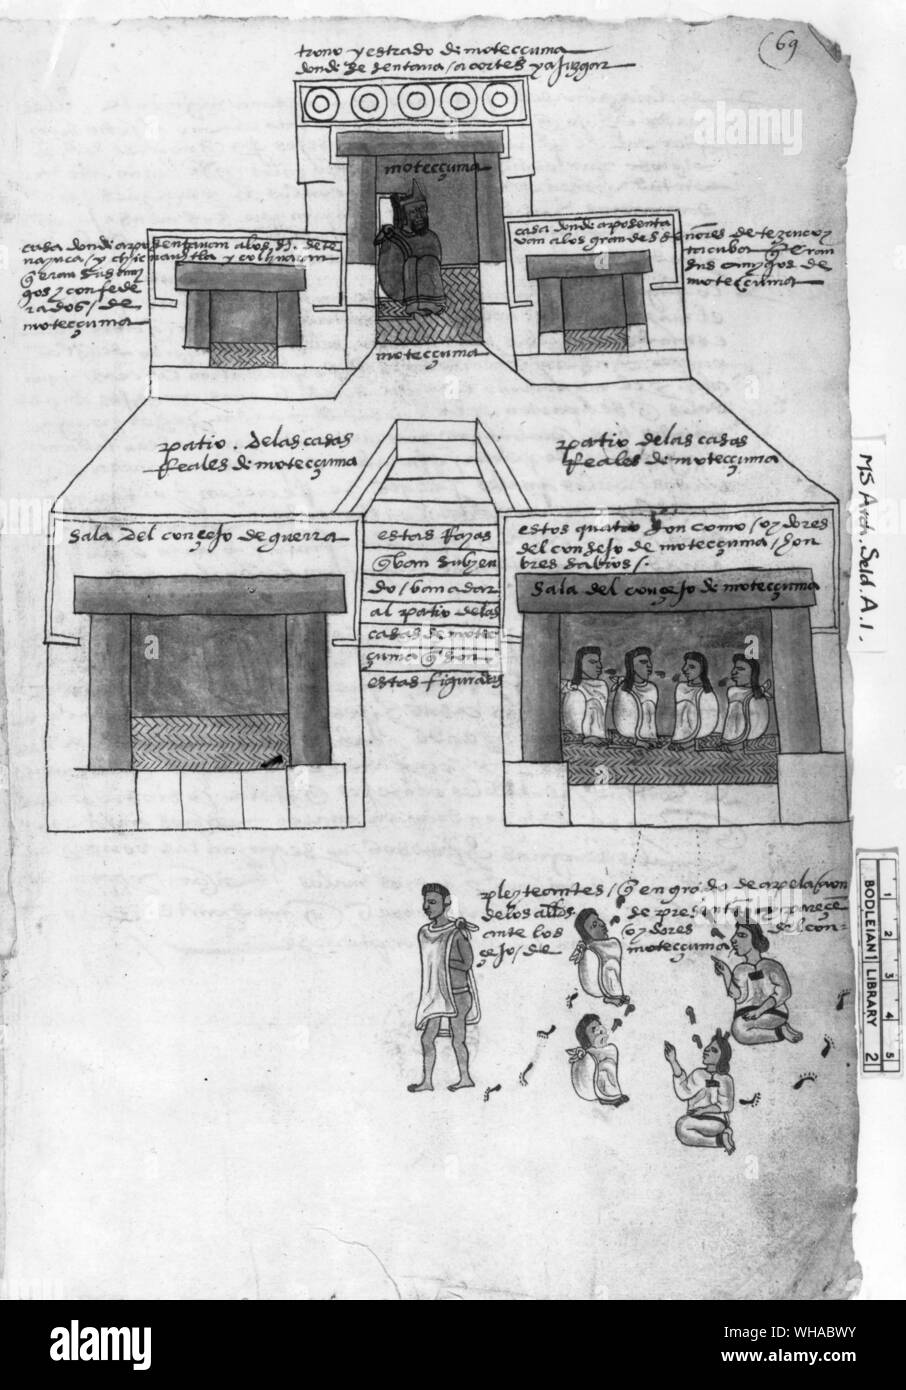 69
trono y estrado de motecçuma
donde se sentava / a cortes y a juzgar
motecçuma
casa donde aposentavan a los s.s. de te
nayuca / y chicnauhtla y colhuacan
q̃ eran sus ami
gos y confede
rados / de
motecçuma
casa donde aposenta
van a los grandes señores de tezcuco y
tacuba q̃ eran
sus amigos de
motecçuma
motecçuma
patio. de las casas
Reales de motecçuma
patio de las casas
Reales de motecçuma
sala del consejo de guerra
estas Rayas
q̃ van subien
do / van a dar
al patio de las
casas de motec
çuma q̃ son
estas figuradas
estos quatro son como / oydores
del consejo de motecçuma / hon
bres sabios /.
sala del conçejo de motecçuma
pleyteantes / q̃ en grado de apelaçion
de los alldes de presentan y pareçe
ante los oydores del con-
çejo / de motecçuma
MS Arch. Seld. A. 1.
BODLEIAN LIBRARY
1 2 3 4 5
2
alamy
a
alamy
Image ID: WHABWY
www.alamy.com